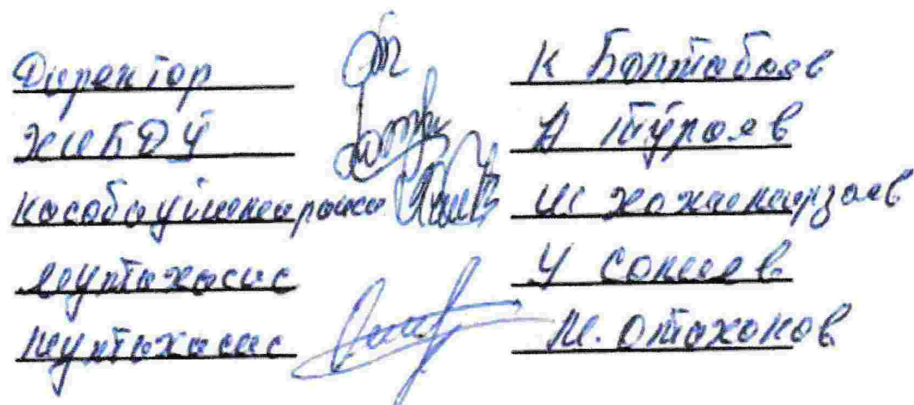 Директор К Болтабоев
ЖИБДЎ А Тўраев
Касаба уюшма раиси Ш Хожиназаров
Мутахасис У Солиев
Мутахасис М. Отахонов